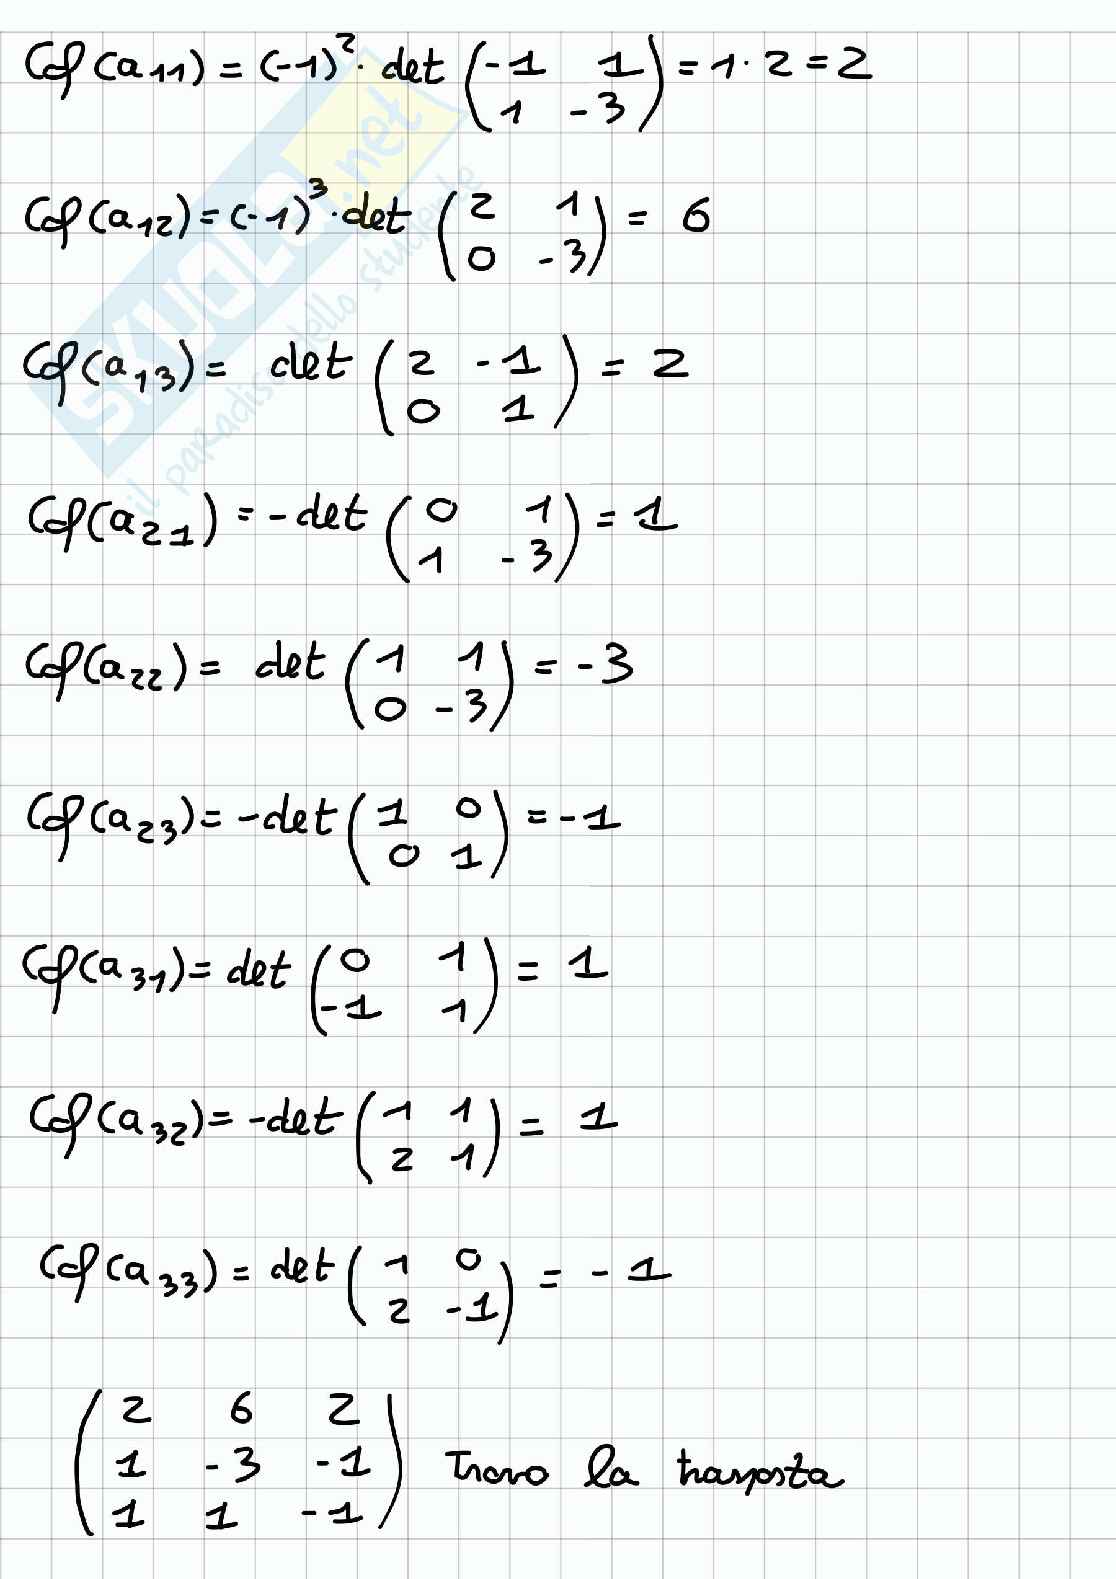 Cof(a₁₁) = (-1)²· det (-1 1
1 -3) = 1·2 = 2
Cof(a₁₂) = (-1)³·det (2 1
0 -3) = 6
Cof(a₁₃) = det (2 -1
0 1) = 2
Cof(a₂₁) = -det (0 1
1 -3) = 1
Cof(a₂₂) = det (1 1
0 -3) = -3
Cof(a₂₃) = -det (1 0
0 1) = -1
Cof(a₃₁) = det (0 1
-1 1) = 1
Cof(a₃₂) = -det (1 1
2 1) = 1
Cof(a₃₃) = det (1 0
2 -1) = -1
(2 6 2
1 -3 -1
1 1 -1) Trovo la trasposta
SKUOLA.net
il paradiso dello studente